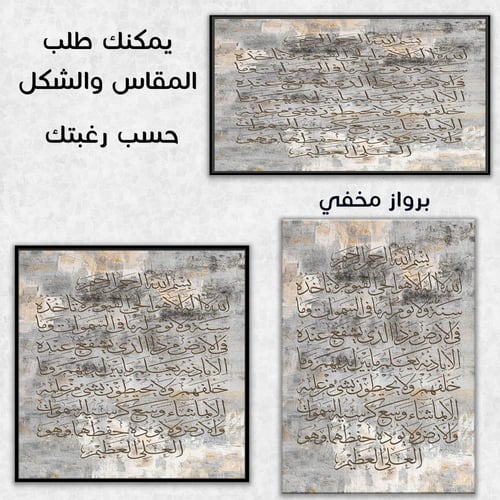 يمكنك طلب
المقاس والشكل
حسب رغبتك
بسم الله الرحمن الرحيم
الله لا اله الا هو الحي القيوم لا تاخذه
سنة ولا نوم له ما في السموات وما
في الارض من ذا الذي يشفع عنده
الا باذنه يعلم ما بين ايديهم وما
خلفهم ولا يحيطون بشئ من علمه
الا بما شاء وسع كرسيه السموات
والارض ولا يوده حفظهما وهو
العلي العظيم
برواز مخفي
بسم الله الرحمن الرحيم
الله لا اله الا هو الحي القيوم لا تاخذه
سنة ولا نوم له ما في السموات وما
في الارض من ذا الذي يشفع عنده
الا باذنه يعلم ما بين ايديهم وما
خلفهم ولا يحيطون بشئ من علمه
الا بما شاء وسع كرسيه السموات
والارض ولا يوده حفظهما وهو
العلي العظيم
بسم الله الرحمن الرحيم
الله لا اله الا هو الحي القيوم لا تاخذه
سنة ولا نوم له ما في السموات وما
في الارض من ذا الذي يشفع عنده
الا باذنه يعلم ما بين ايديهم وما
خلفهم ولا يحيطون بشئ من علمه
الا بما شاء وسع كرسيه السموات
والارض ولا يوده حفظهما وهو
العلي العظيم